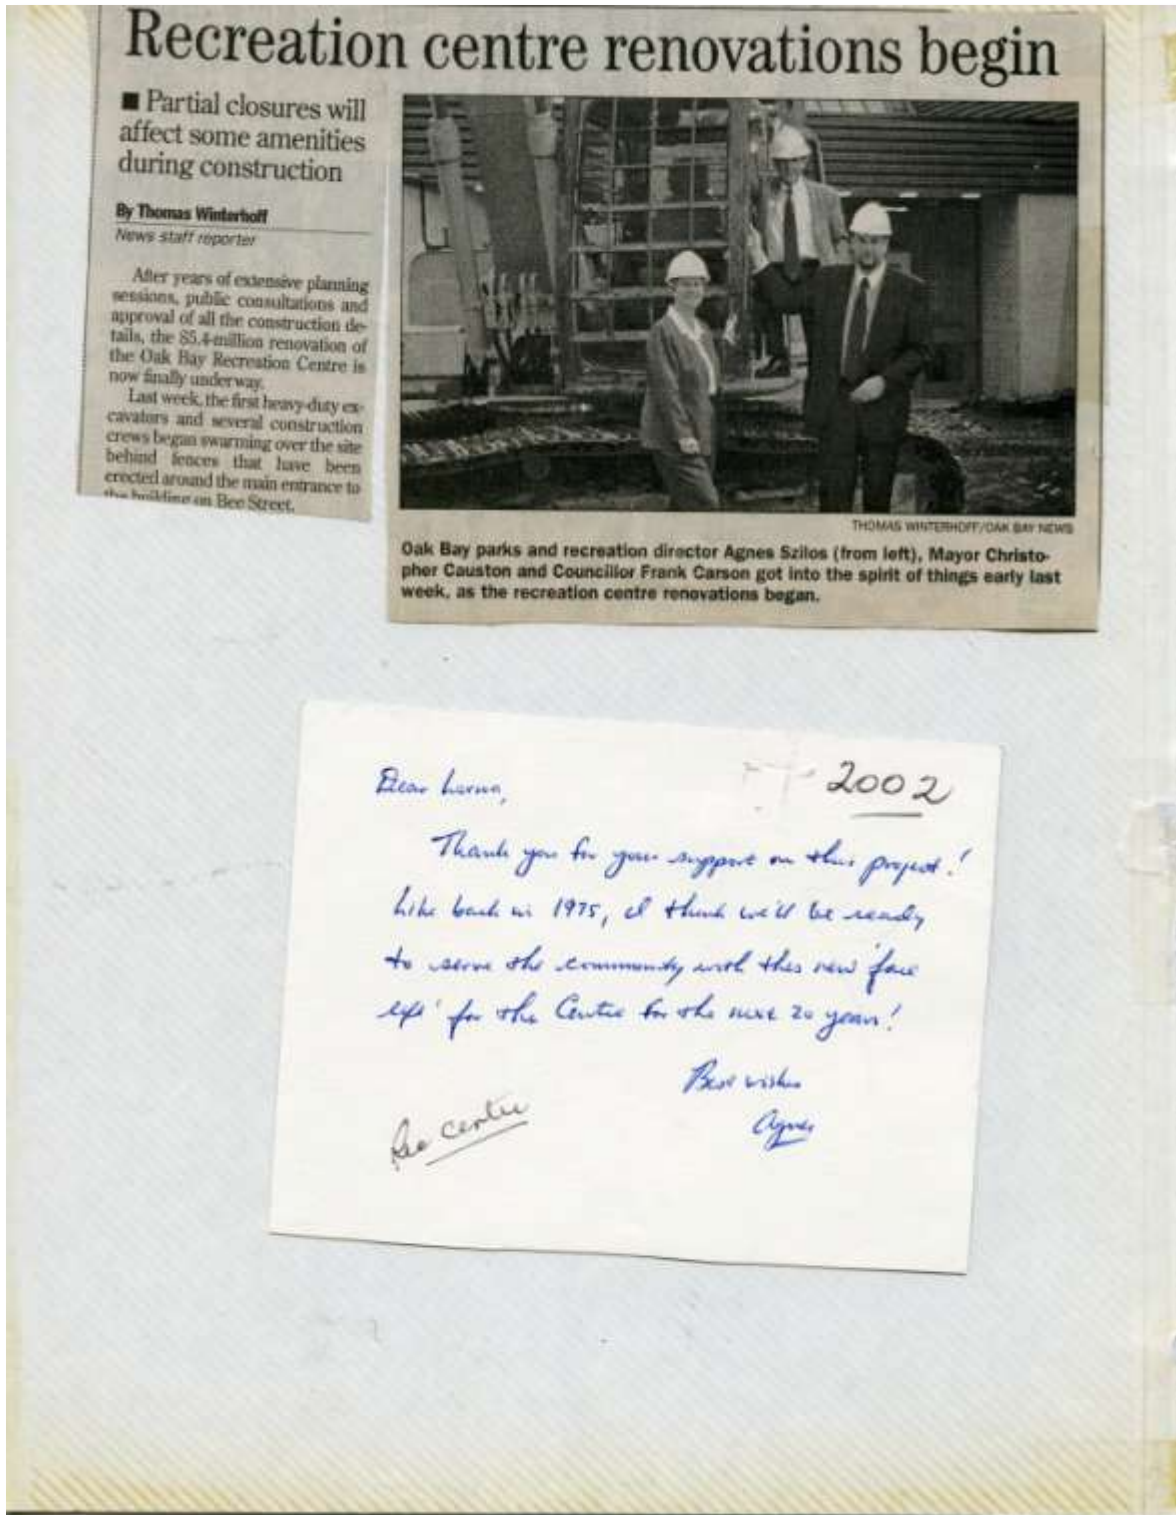 Recreation centre renovations begin
■ Partial closures will
affect some amenities
during construction
By Thomas Winterhoff
News staff reporter
After years of extensive planning
sessions, public consultations and
approval of all the construction de-
tails, the $5.4-million renovation of
the Oak Bay Recreation Centre is
now finally underway.
Last week, the first heavy-duty ex-
cavators and several construction
crews began swarming over the site
behind fences that have been
erected around the main entrance to
the building on Bee Street.
THOMAS WINTERHOFF/OAK BAY NEWS
Oak Bay parks and recreation director Agnes Szilos (from left), Mayor Christo-
pher Causton and Councillor Frank Carson got into the spirit of things early last
week, as the recreation centre renovations began.
2002
Dear Lorna,
Thank you for your support on this project!
Like back in 1975, I think we'll be ready
to serve the community with this new 'face
lift' for the Centre for the next 20 years!
Best wishes
Agnes
Rec centre